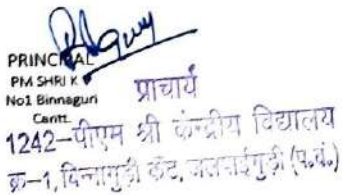 PRINCIPAL
PM SHRI K
No1 Binnaguri
Cantt.
प्राचार्य
1242-पीएम श्री केन्द्रीय विद्यालय
क्र-1, बिन्नागुड़ी कैंट, जलपाईगुड़ी (प.बं.)